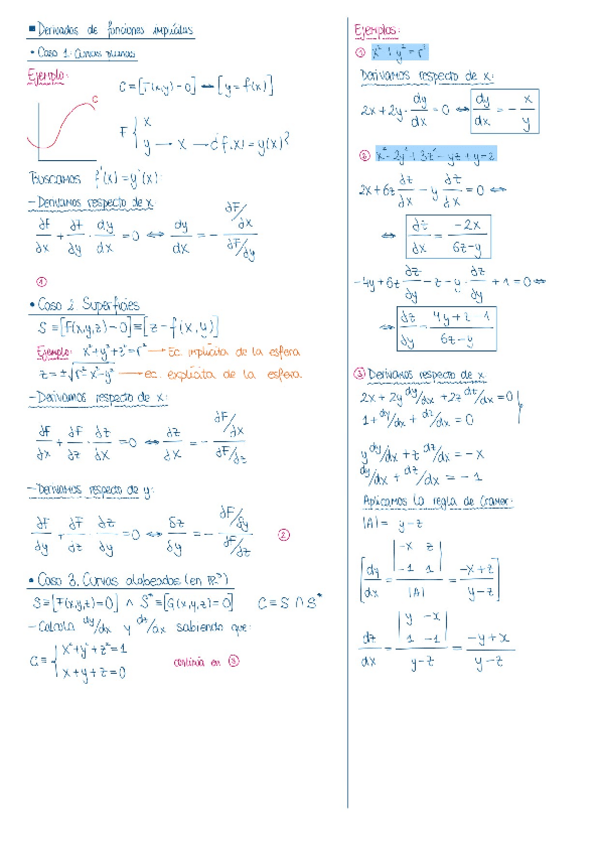 ■ Derivadas de funciones implícitas
• Caso 1. Curvas planas
Ejemplo:
C ≡ [F(x,y)=0] ↔ [y=f(x)]
C
F { x
y → x → d f.xi = y(x)?
Buscamos f'(x) = y'(x):
- Derivamos respecto de x:
∂F/∂x + ∂F/∂y · dy/dx = 0 ⇔ dy/dx = - ∂F/∂x / ∂F/∂y
①
• Caso 2. Superficies
S ≡ [F(x,y,z)=0] ≡ [z = f(x,y)]
Ejemplo: x²+y²+z²=r² → Ec. implícita de la esfera
z = ±√r²-x²-y² → ec. explícita de la esfera.
- Derivamos respecto de x:
∂F/∂x + ∂F/∂z · ∂z/∂x = 0 ⇔ ∂z/∂x = - ∂F/∂x / ∂F/∂z
- Derivamos respecto de y:
∂F/∂y + ∂F/∂z · ∂z/∂y = 0 ⇔ ∂z/∂y = - ∂F/∂y / ∂F/∂z
②
• Caso 3. Curvas alabeadas (en ℝ³)
S ≡ [F(x,y,z)=0] ∧ S* ≡ [G(x,y,z)=0] C ≡ S ∩ S*
- Calcula dy/dx y dz/dx sabiendo que:
C ≡ { x²+y²+z²=1
x+y+z=0
continúa en ③
Ejemplos:
① x²+y²=r²
Derivamos respecto de x:
2x+2y · dy/dx = 0 ⇔ dy/dx = - x/y
② x²-2y²+3z²-yz+y=2
2x+6z ∂z/∂x - y ∂z/∂x = 0 ⇔
⇔ ∂z/∂x = -2x/6z-y
-4y+6z ∂z/∂y - z - y · ∂z/∂y + 1 = 0 ⇔
⇔ ∂z/∂y = 4y+z-1/6z-y
③ Derivamos respecto de x
2x + 2y dy/dx + 2z dz/dx = 0 }
1 + dy/dx + dz/dx = 0
y dy/dx + z dz/dx = -x
dy/dx + dz/dx = -1
Aplicamos la regla de Cramer:
|A| = y-z
dy/dx = |-x z; -1 1| / |A| = -x+z/y-z
dz/dx = |y -x; 1 -1| / y-z = -y+x/y-z